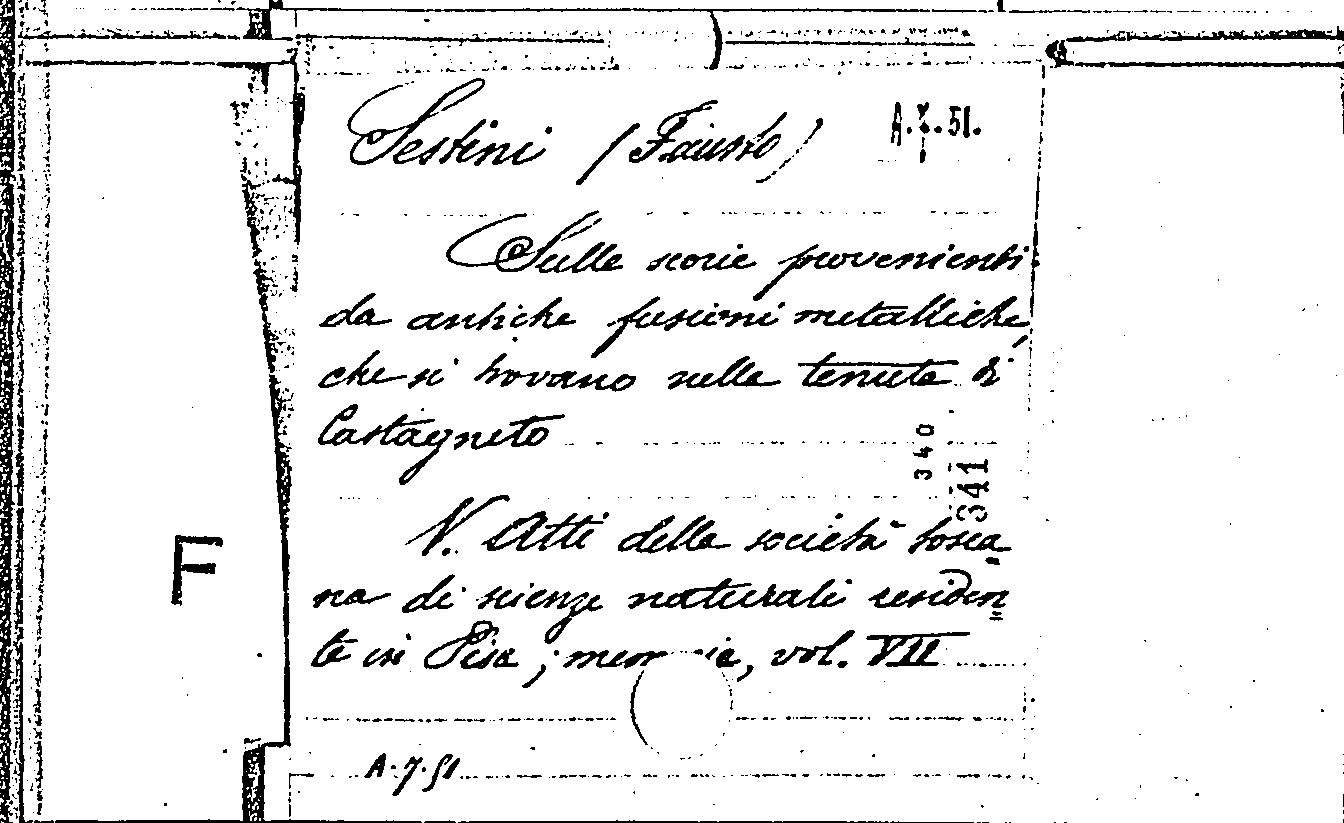 Sestini (Fausto) A.7.51.
Sulle scorie provenienti
da antiche fusioni metalliche,
che si trovano nella tenuta di
Castagneto
340
341
V. Atti della società tosca
na di scienze naturali residen
te in Pisa; memorie, vol. VII
A.7.51
F